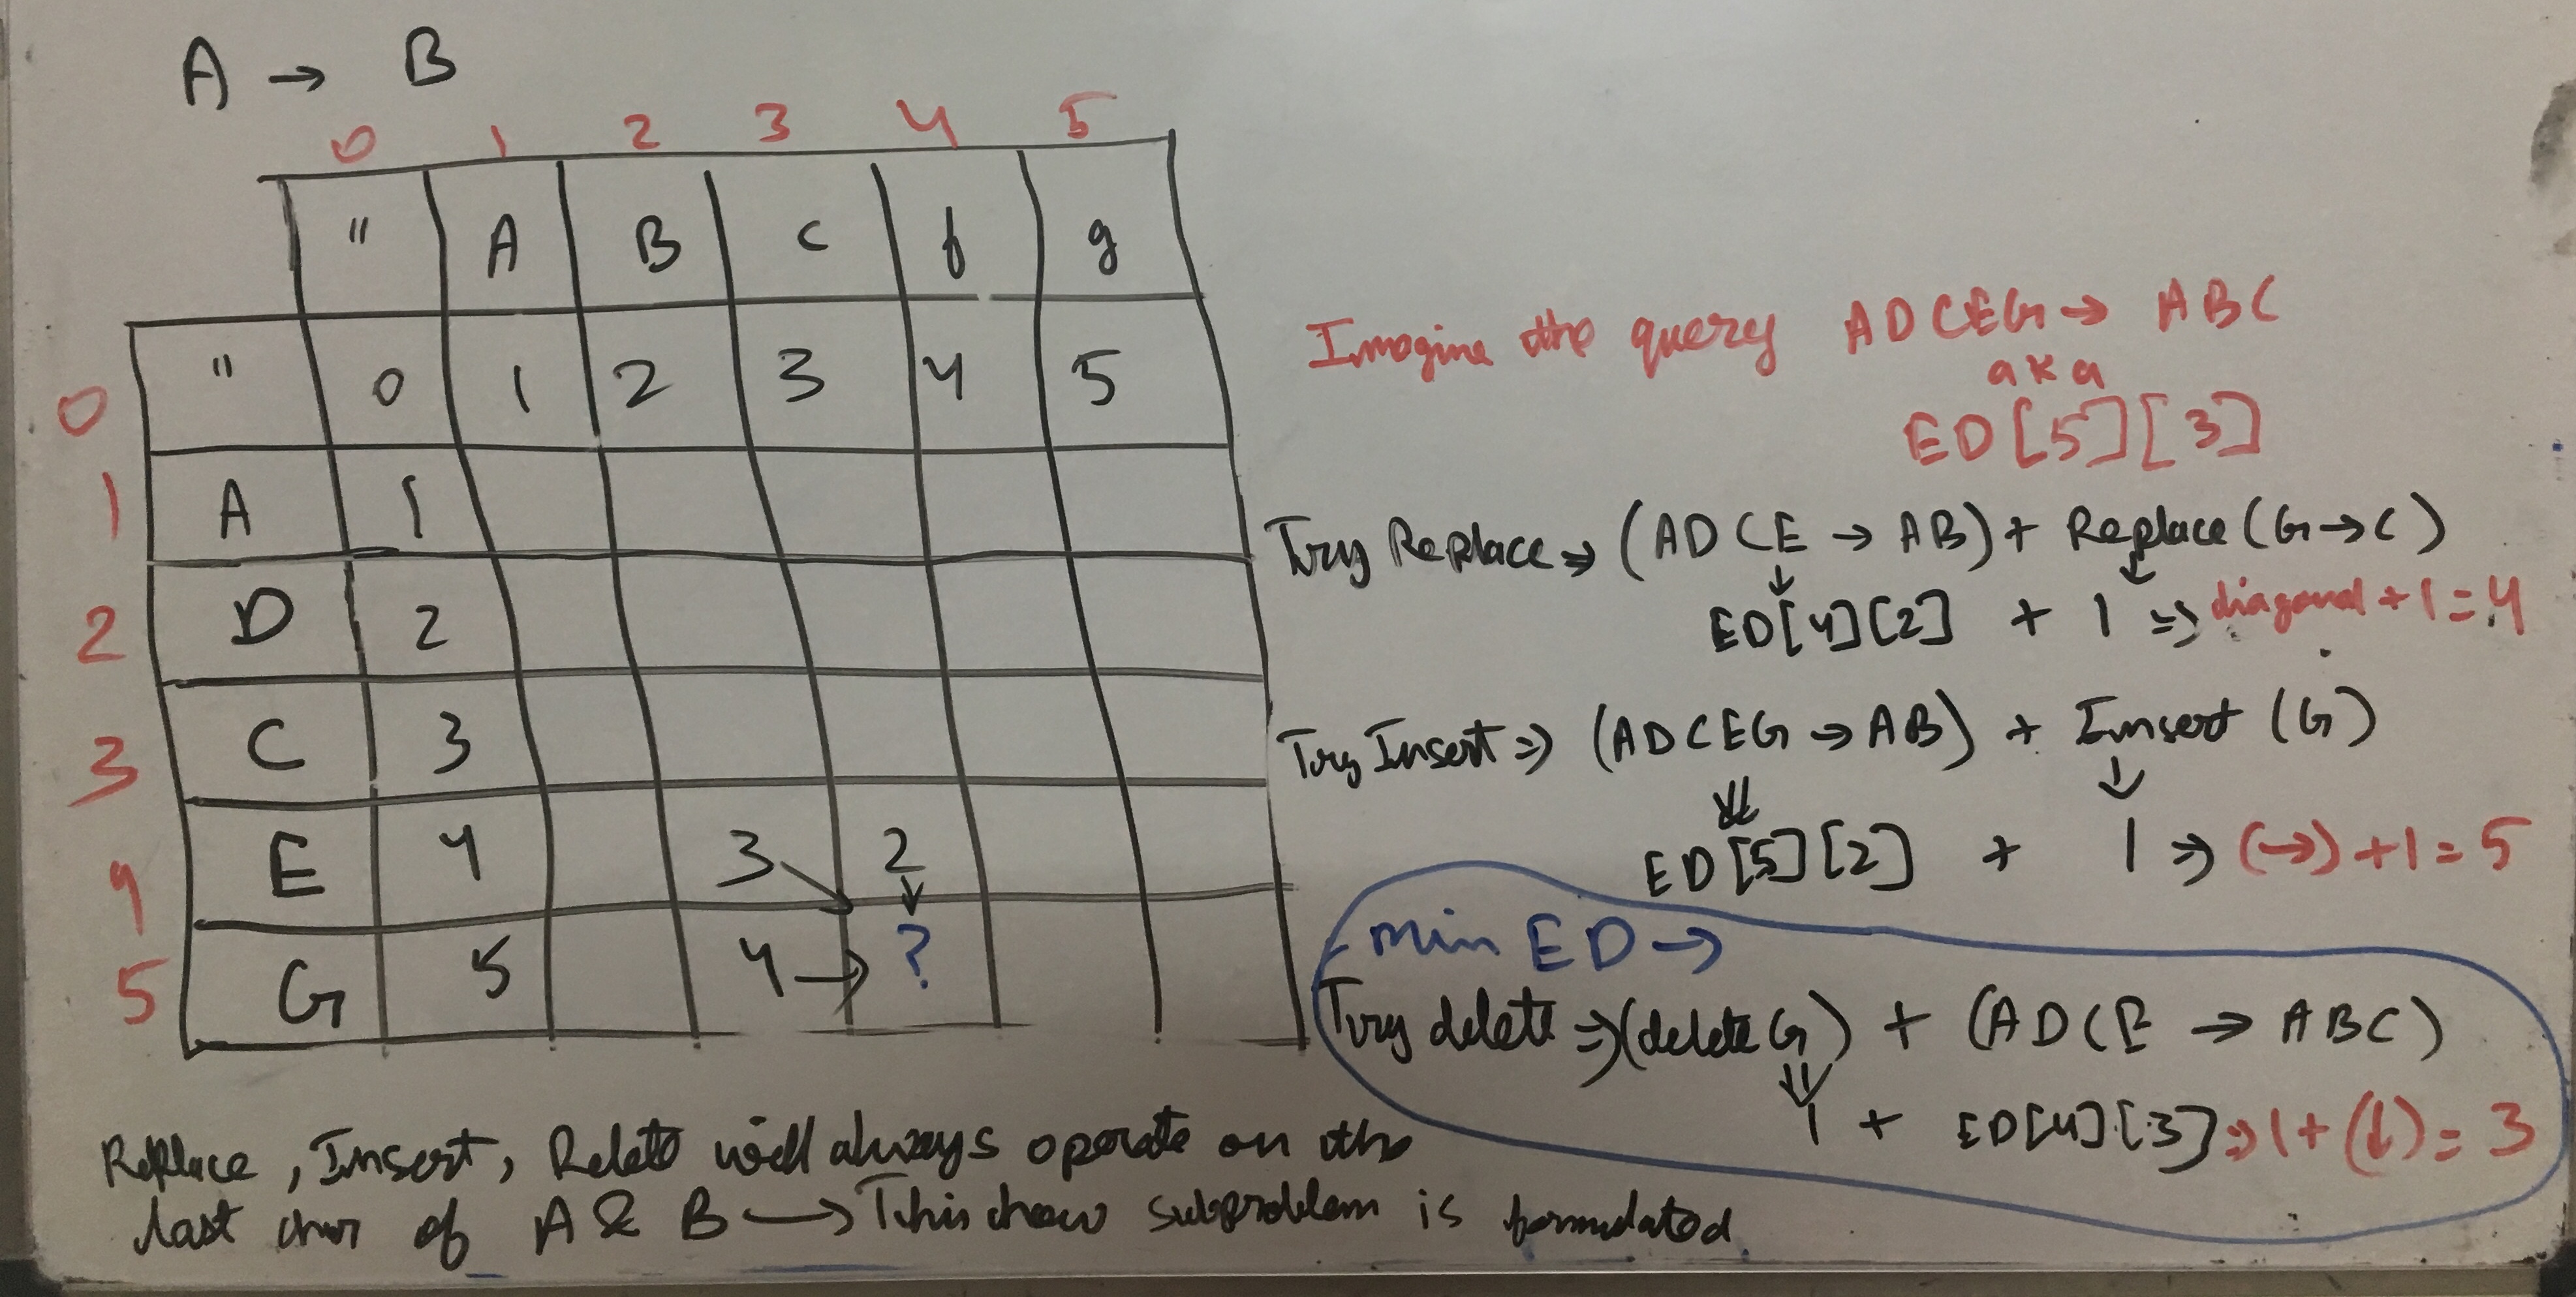 A → B
0 1 2 3 4 5
" A B C f g
0 " 0 1 2 3 4 5
1 A 1
2 D 2
3 C 3
4 E 4 3 2
5 G 5 4 → ?
Imagine the query ADCEG → ABC
aka
ED[5][3]
Try Replace ⇒ (ADCE → AB) + Replace (G → C)
ED[4][2] + 1 ⇒ diagonal + 1 = 4
Try Insert ⇒ (ADCEG → AB) + Insert (G)
ED[5][2] + 1 ⇒ (→) + 1 = 5
min ED →
Try delete ⇒ (delete G) + (ADCE → ABC)
1 + ED[4][3] ⇒ 1 + (↓) = 3
Replace, Insert, Delete will always operate on the
last char of A & B → This how subproblem is formulated.